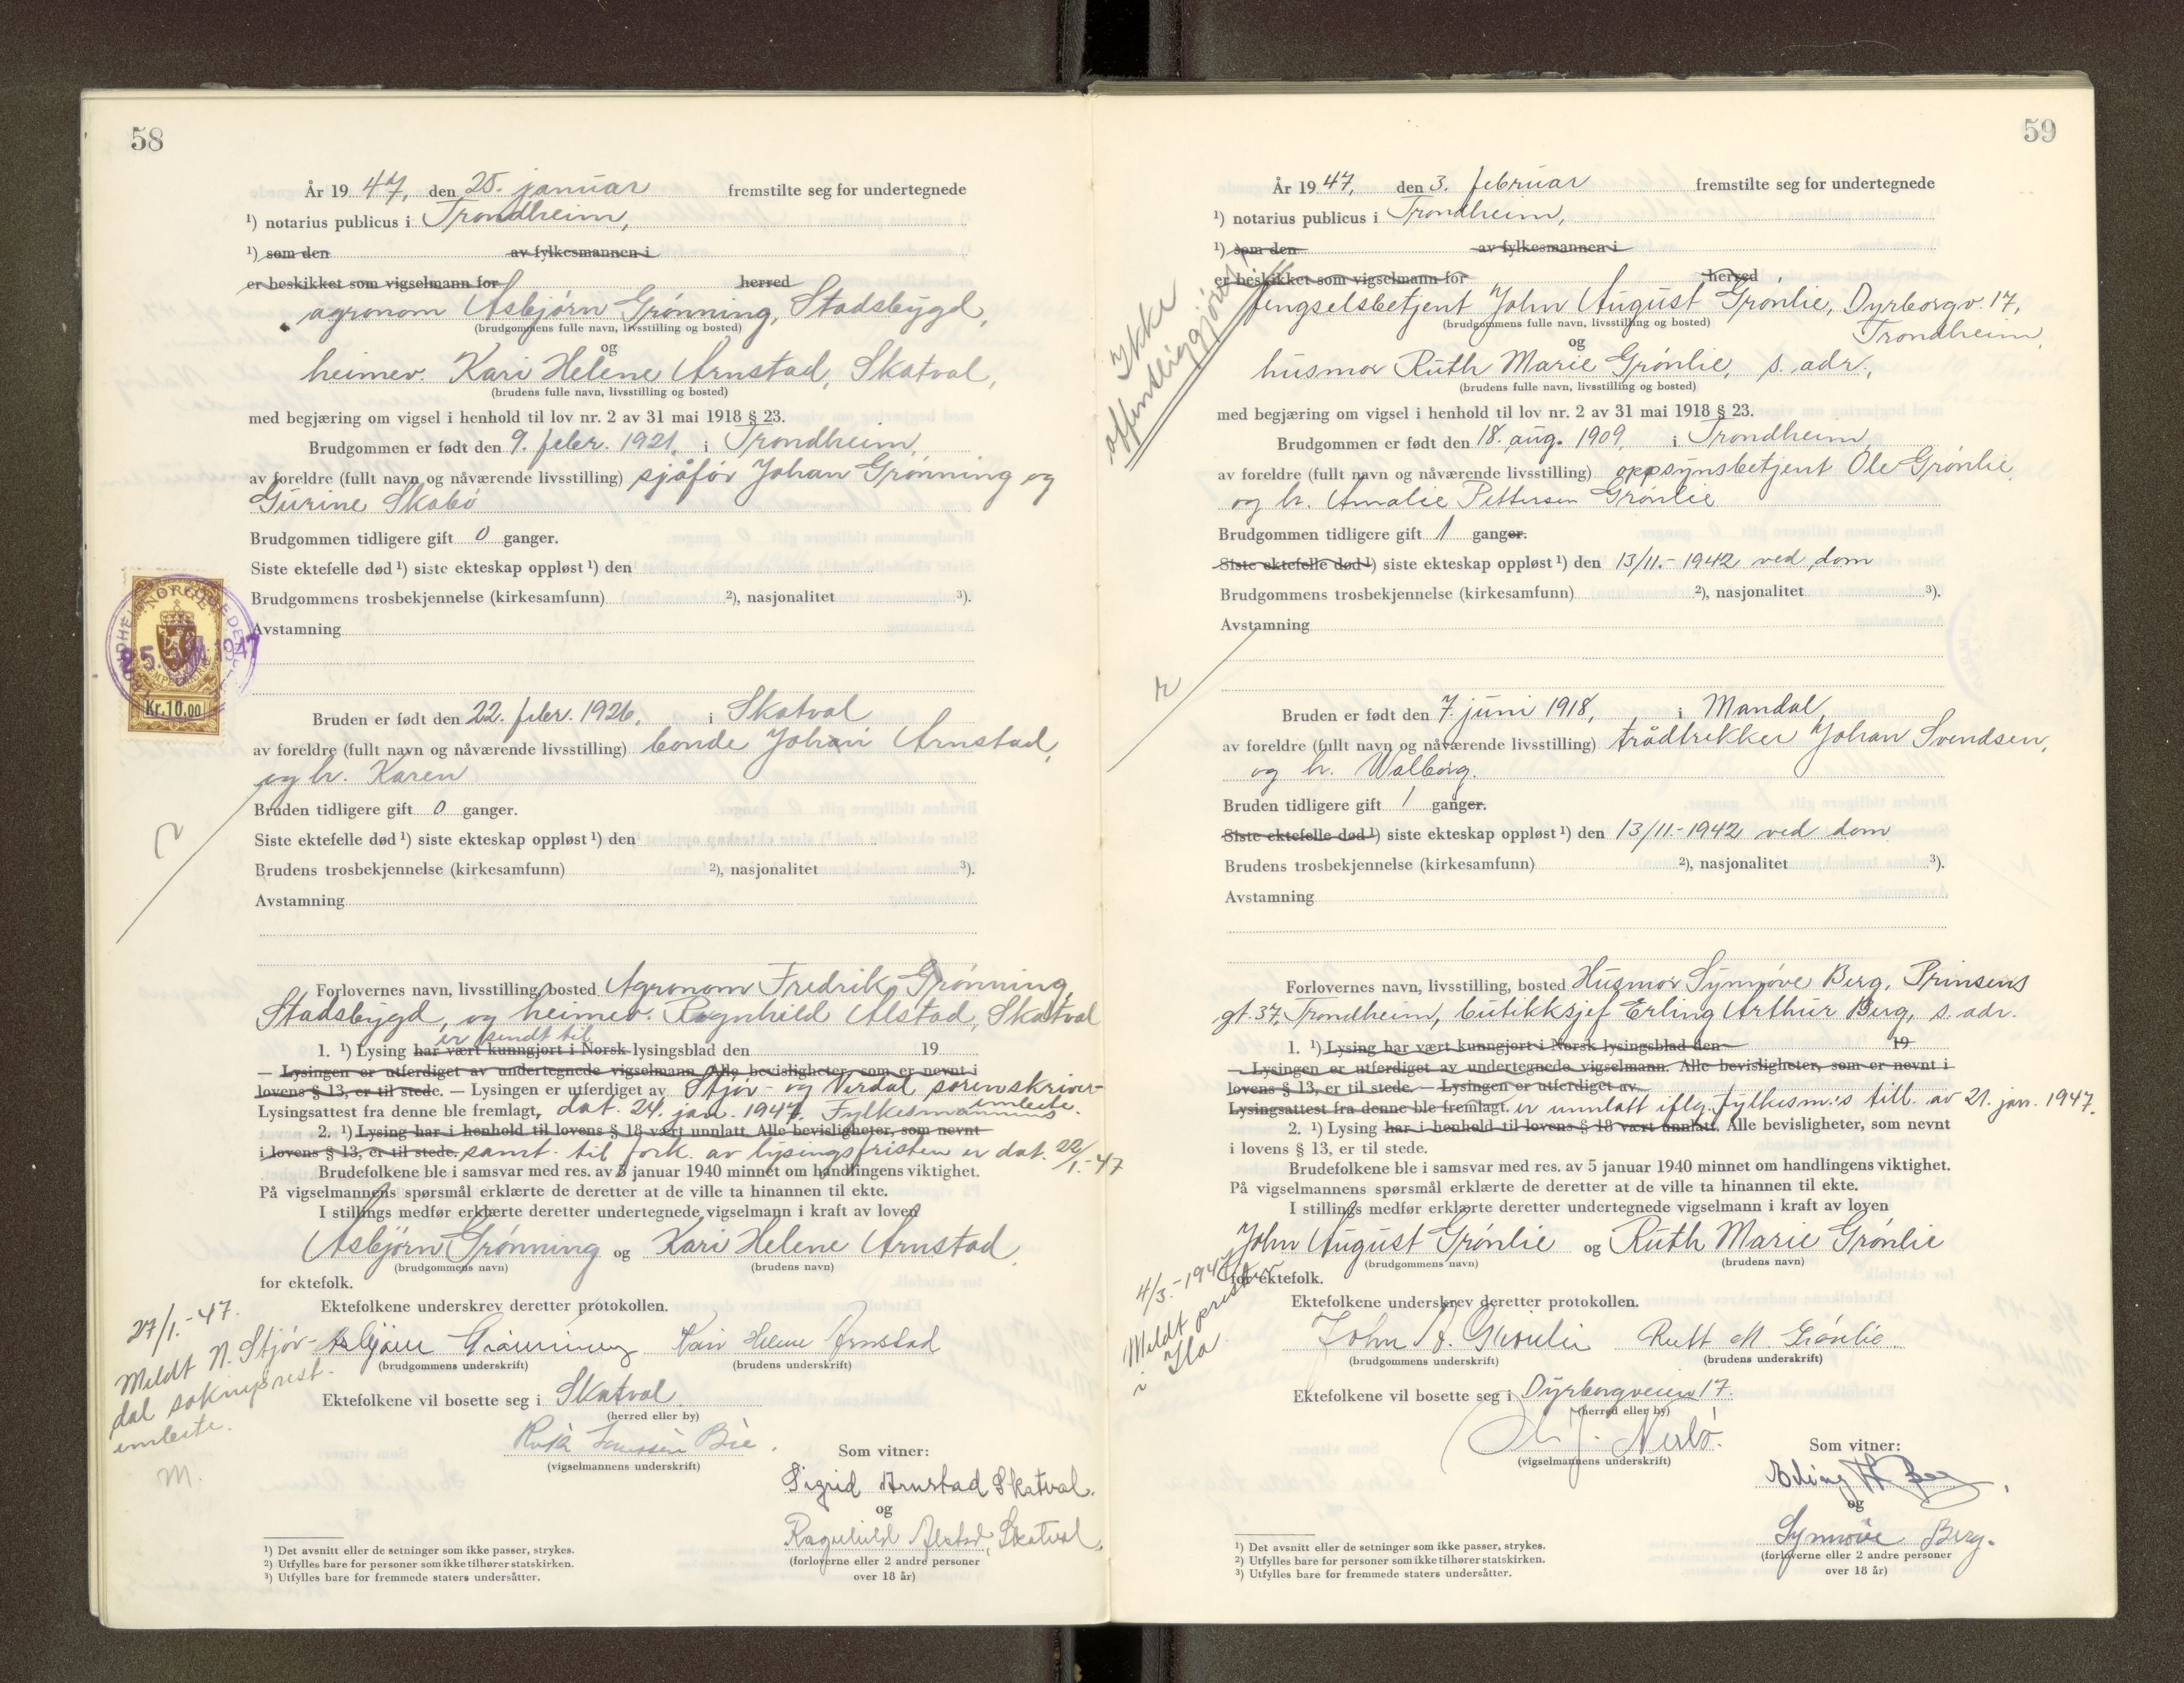 58
År 19 47, den 25. januar fremstilte seg for undertegnede
¹) notarius publicus i Trondheim,
¹) som den av fylkesmannen i
er beskikket som vigselmann for herred
agronom Asbjørn Grønning, Stadsbygd,
(brudgommens fulle navn, livsstilling og bosted)
og
heimev. Kari Helene Arnstad, Skatval,
(brudens fulle navn, livsstilling og bosted)
med begjæring om vigsel i henhold til lov nr. 2 av 31 mai 1918 § 23.
Brudgommen er født den 9. febr. 1921, i Trondheim,
av foreldre (fullt navn og nåværende livsstilling) sjåfør Johan Grønning og
Gurine Skabö
Brudgommen tidligere gift 0 ganger.
Siste ektefelle død ¹) siste ekteskap oppløst ¹) den
Brudgommens trosbekjennelse (kirkesamfunn) ²), nasjonalitet ³).
Avstamning
NORGE
25. JAN. 1947
Kr. 10,00
Bruden er født den 22. febr. 1926, i Skatval
av foreldre (fullt navn og nåværende livsstilling) bonde Johan Arnstad,
og h. Karen
Bruden tidligere gift 0 ganger.
Siste ektefelle død ¹) siste ekteskap oppløst ¹) den
Brudens trosbekjennelse (kirkesamfunn) ²), nasjonalitet ³).
Avstamning
Forlovernes navn, livsstilling, bosted Agronom Fredrik Grønning,
Stadsbygd, og heimev. Ragnhild Alstad, Skatval
er sendt til
1. ¹) Lysing har vært kunngjort i Norsk lysingsblad den 19
— Lysingen er utferdiget av undertegnede vigselmann. Alle bevisligheter, som er nevnt i
lovens § 13, er til stede. — Lysingen er utferdiget av Stjør- og Verdal sorenskriver-
embete.
Lysingsattest fra denne ble fremlagt, dat. 24. jan. 1947. Fylkesmannens
2. ¹) Lysing har i henhold til lovens § 18 vært unnlatt. Alle bevisligheter, som nevnt
i lovens § 13, er til stede. samt. til fork. av lysingsfristen er dat. 22/1.-47
Brudefolkene ble i samsvar med res. av 5 januar 1940 minnet om handlingens viktighet.
På vigselmannens spørsmål erklærte de deretter at de ville ta hinannen til ekte.
I stillings medfør erklærte deretter undertegnede vigselmann i kraft av loven
Asbjørn Grønning og Kari Helene Arnstad
(brudgommens navn) (brudens navn)
for ektefolk.
Ektefolkene underskrev deretter protokollen.
27/1.-47.
Meldt N. Stjør-
dal sokneprest-
embete.
M.
Asbjørn Grønning Kari Helene Arnstad
(brudgommens underskrift) (brudens underskrift)
Ektefolkene vil bosette seg i Skatval
(herred eller by)
(vigselmannens underskrift)
Som vitner:
Sigrid Arnstad Skatval.
og
Ragnhild Alstad, Skatval,
(forloverne eller 2 andre personer
over 18 år)
¹) Det avsnitt eller de setninger som ikke passer, strykes.
²) Utfylles bare for personer som ikke tilhører statskirken.
³) Utfylles bare for fremmede staters undersåtter.
59
År 19 47, den 3. februar fremstilte seg for undertegnede
¹) notarius publicus i Trondheim,
¹) som den av fylkesmannen i
er beskikket som vigselmann for herred
Ikke
offentliggjøres!
fengselsbetjent John August Grønlie, Dyrborgv. 17,
(brudgommens fulle navn, livsstilling og bosted)
Trondheim,
og
husmor Ruth Marie Grønlie, s. adr.,
(brudens fulle navn, livsstilling og bosted)
med begjæring om vigsel i henhold til lov nr. 2 av 31 mai 1918 § 23.
Brudgommen er født den 18. aug. 1909, i Trondheim,
av foreldre (fullt navn og nåværende livsstilling) oppsynsbetjent Ole Grønlie,
og h. Amalie Pettersen Grønlie
Brudgommen tidligere gift 1 ganger.
Siste ektefelle død ¹) siste ekteskap oppløst ¹) den 13/11.-1942 ved dom
Brudgommens trosbekjennelse (kirkesamfunn) ²), nasjonalitet ³).
Avstamning
Bruden er født den 7. juni 1918, i Mandal,
av foreldre (fullt navn og nåværende livsstilling) trådtrekker Johan Svendsen,
og h. Walborg.
Bruden tidligere gift 1 ganger.
Siste ektefelle død ¹) siste ekteskap oppløst ¹) den 13/11.-1942 ved dom
Brudens trosbekjennelse (kirkesamfunn) ²), nasjonalitet ³).
Avstamning
Forlovernes navn, livsstilling, bosted Husmor Synnøve Berg, Prinsens
gt. 37, Trondheim, butikksjef Erling Arthur Berg, s. adr.
1. ¹) Lysing har vært kunngjort i Norsk lysingsblad den 19
— Lysingen er utferdiget av undertegnede vigselmann. Alle bevisligheter, som er nevnt i
lovens § 13, er til stede. — Lysingen er utferdiget av
Lysingsattest fra denne ble fremlagt. er unnlatt iflg. fylkesm.'s till. av 21. jan. 1947.
2. ¹) Lysing har i henhold til lovens § 18 vært unnlatt. Alle bevisligheter, som nevnt
i lovens § 13, er til stede.
Brudefolkene ble i samsvar med res. av 5 januar 1940 minnet om handlingens viktighet.
På vigselmannens spørsmål erklærte de deretter at de ville ta hinannen til ekte.
I stillings medfør erklærte deretter undertegnede vigselmann i kraft av loven
John August Grønlie og Ruth Marie Grønlie
(brudgommens navn) (brudens navn)
for ektefolk.
4/3.-1947
Meldt presten
i Ila
Ektefolkene underskrev deretter protokollen.
John A. Grønlie Ruth M. Grønlie
(brudgommens underskrift) (brudens underskrift)
Ektefolkene vil bosette seg i Dyrborgveien 17.
(herred eller by)
(vigselmannens underskrift)
Som vitner:
Erling A. Berg,
og
Synnøve Berg.
(forloverne eller 2 andre personer
over 18 år)
¹) Det avsnitt eller de setninger som ikke passer, strykes.
²) Utfylles bare for personer som ikke tilhører statskirken.
³) Utfylles bare for fremmede staters undersåtter.